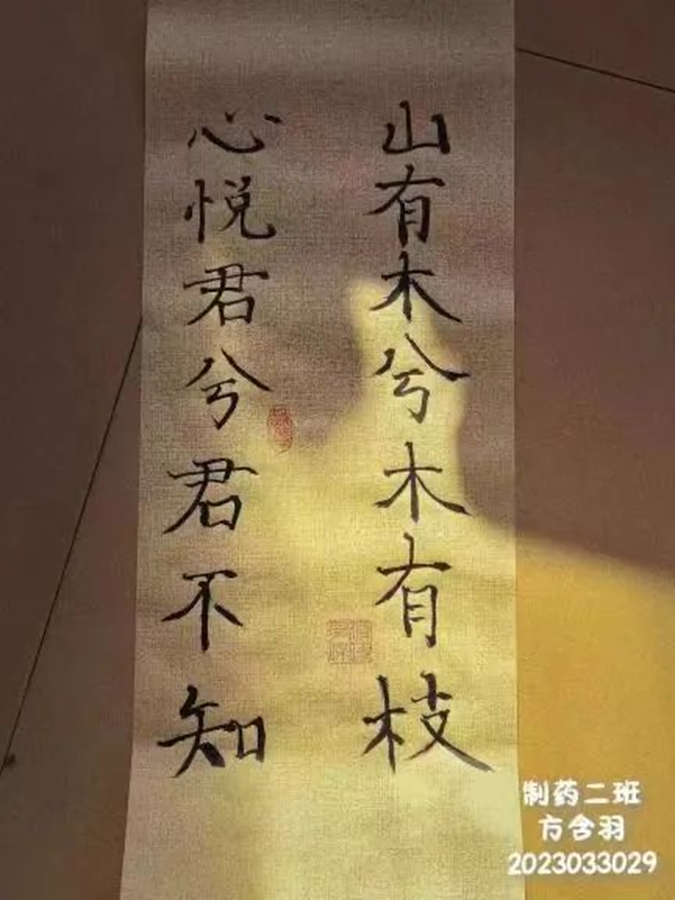 山有木兮木有枝
心悦君兮君不知
制药二班
方含羽
2023033029